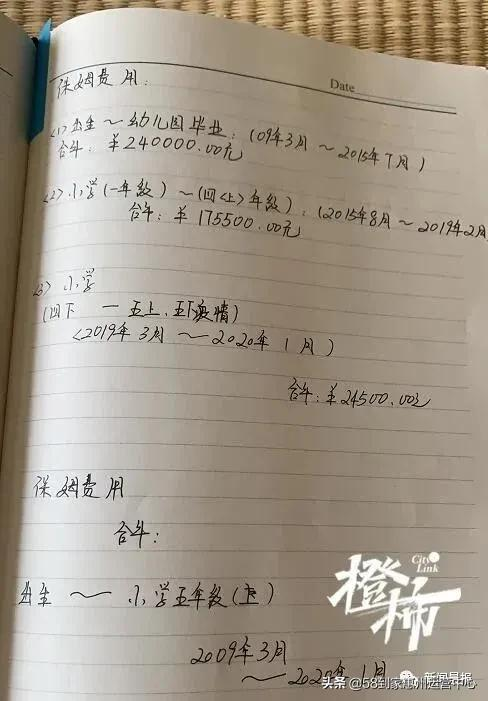 Date
保姆费用:
<1>出生~幼儿园毕业:(09年3月~2015年7月)
合计:¥240000.00元
<2>小学(一年级)~(四<上>年级):(2015年8月~2019年2月
合计:¥175500.00元
<3>小学
(四下 — 五上、五下疫情)
<2019年3月~2020年1月)
合计:¥24500.00元
保姆费用
合计:
出生~小学五年级(上)
2009年3月
~2020年1月
City
Link
橙柿
新闻早报
头条 @58到家惠州运营中心